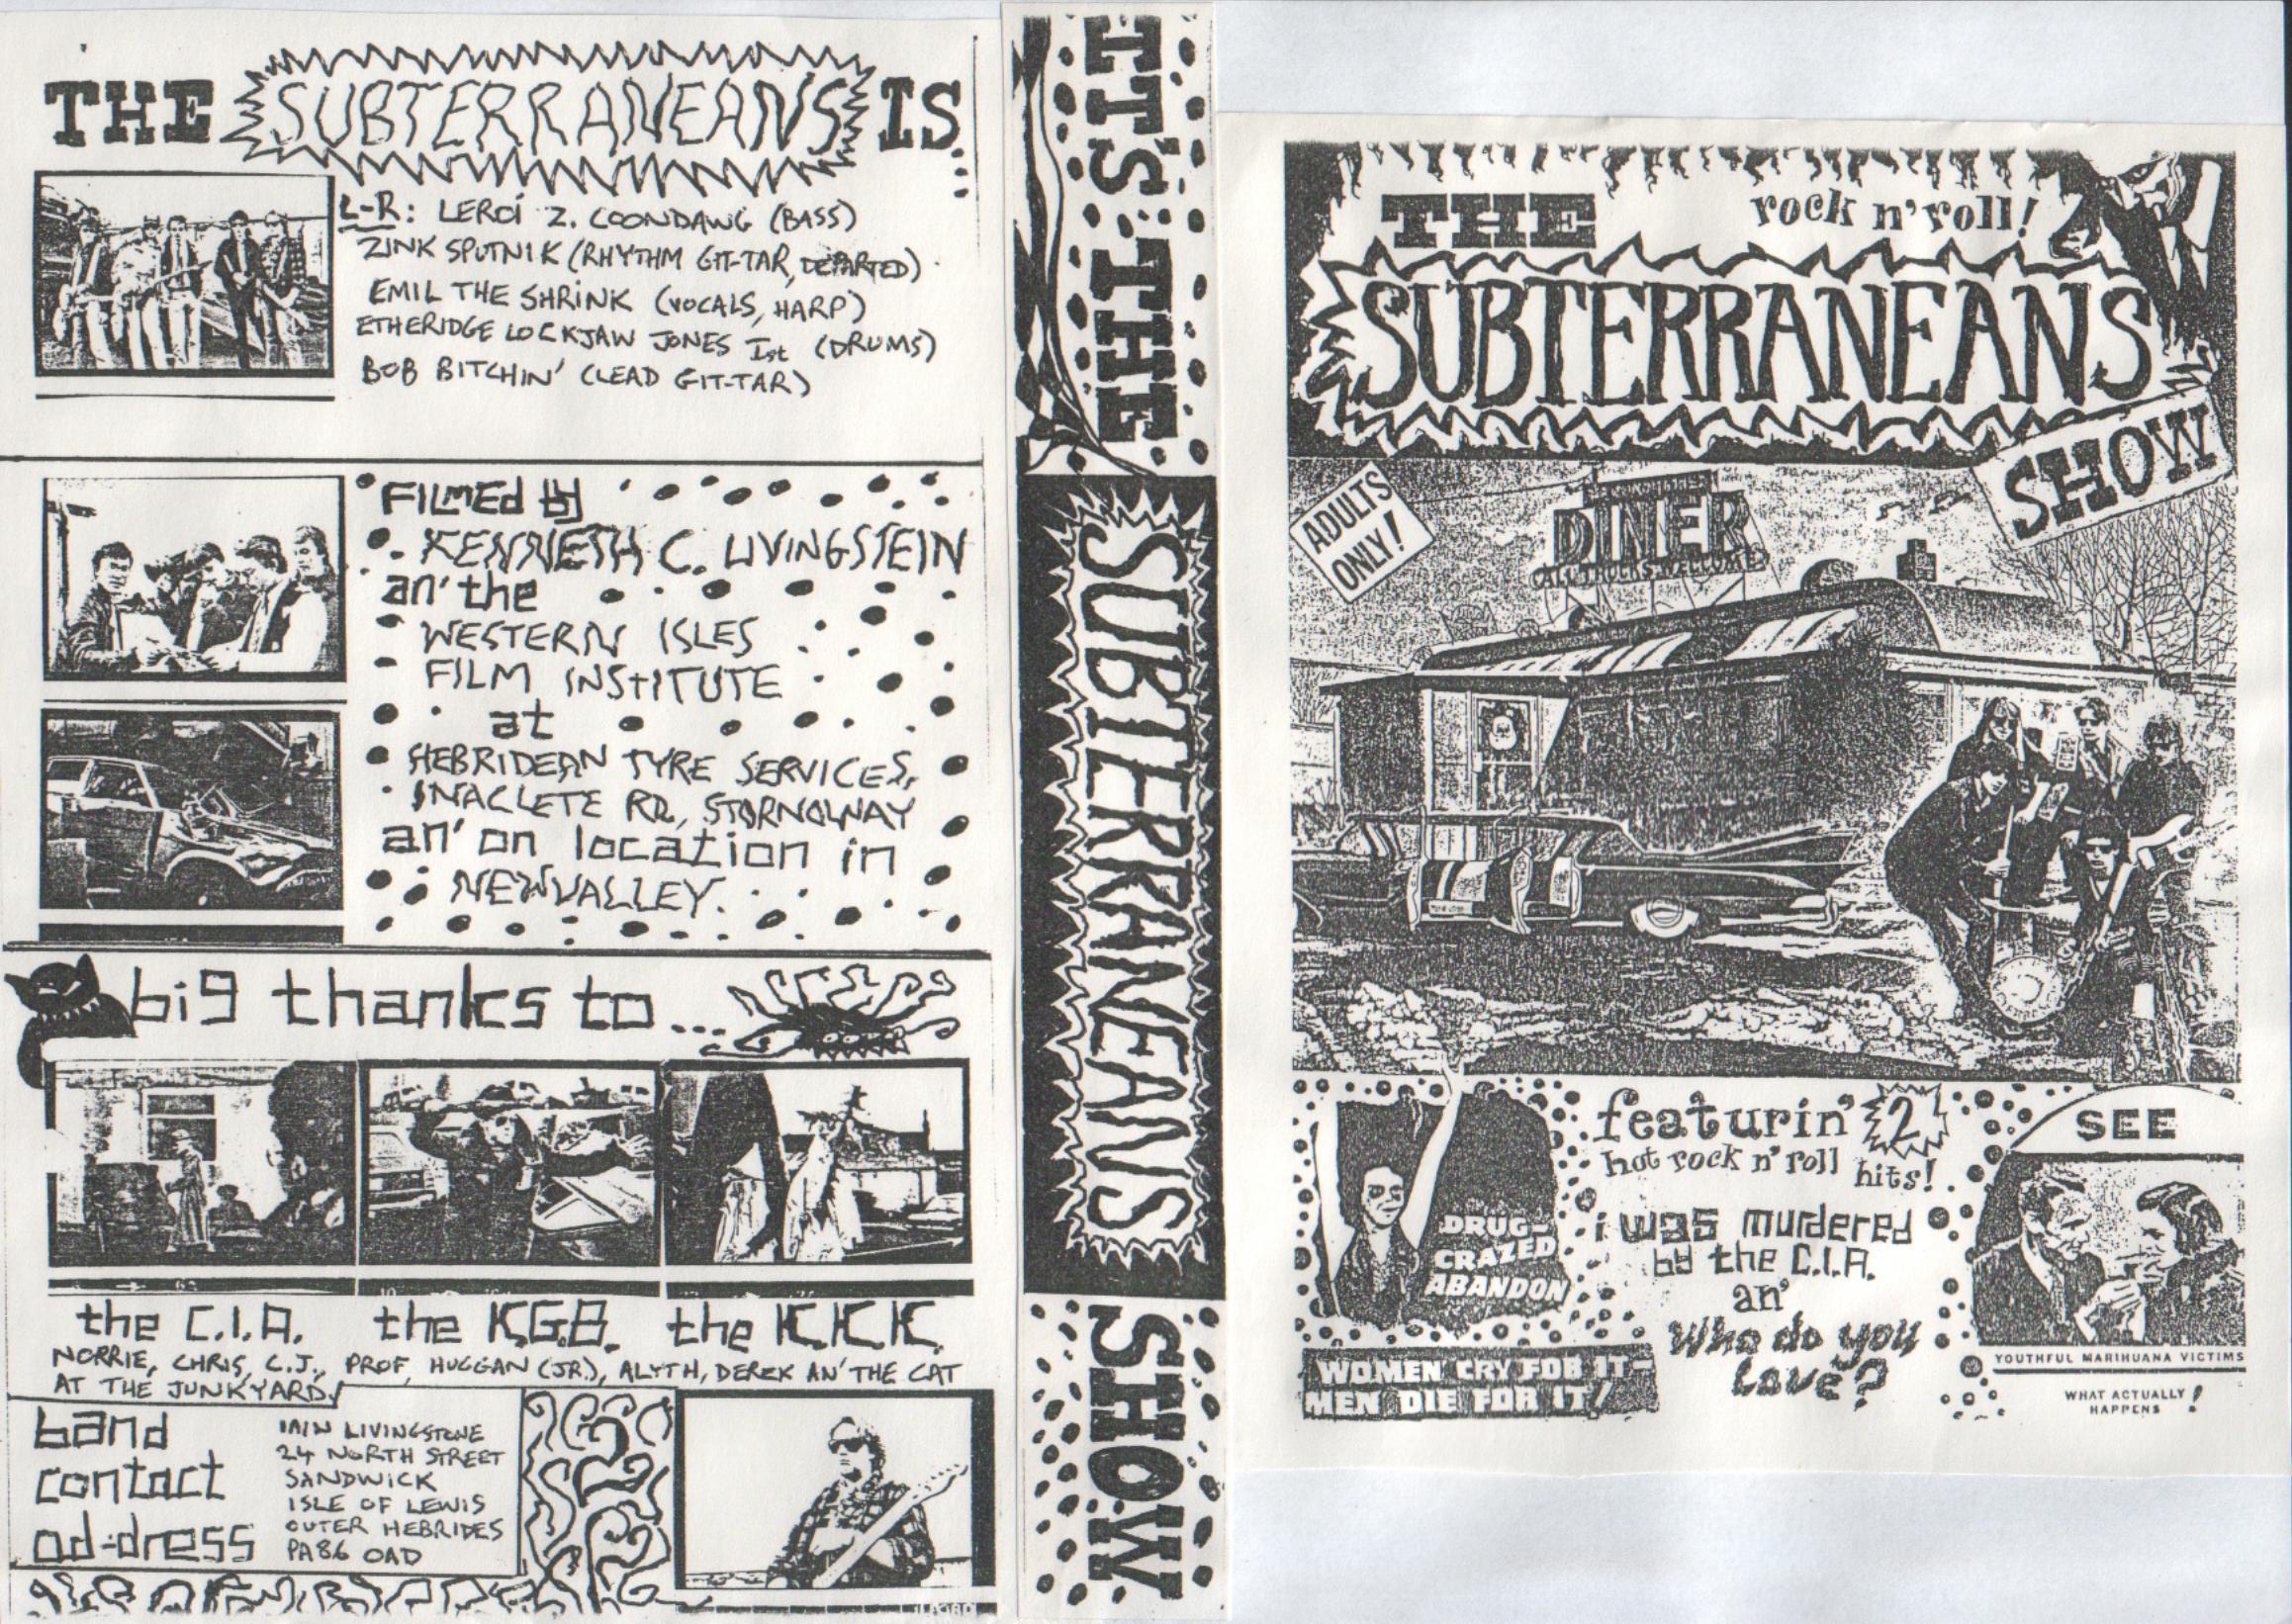 THE SUBTERRANEANS IS...
L-R: LEROI Z. COONDAWG (BASS)
ZINK SPUTNIK (RHYTHM GIT-TAR, DEPARTED)
EMIL THE SHRINK (VOCALS, HARP)
ETHERIDGE LOCKJAW JONES Ist (DRUMS)
BOB BITCHIN' (LEAD GIT-TAR)
FILMEd by
KENNETH C. LIVINGSTEIN
an' the
WESTERN ISLES
FILM INSTITUTE
at
HEBRIDEAN TYRE SERVICES,
INACLETE RD, STORNOWAY
an' on location in
NEWVALLEY.
big thanks to...
the C.I.A.
the K.G.B.
the K.K.K.
NORRIE, CHRIS, C.J., PROF, HUGGAN (JR.), ALYTH, DEREK AN' THE CAT
AT THE JUNKYARD!
band
contact
ad-dress
IAIN LIVINGSTONE
24 NORTH STREET
SANDWICK
ISLE OF LEWIS
OUTER HEBRIDES
PA86 0AD
IT'S THE
SUBTERRANEANS
SHOW
THE
rock n' roll!
SUBTERRANEANS
SHOW
ADULTS
ONLY!
DINER
ALL TRUCKS WELCOME
featurin' 2
hot rock n' roll hits!
i was murdered
by the C.I.A.
an'
Who do you
Love?
DRUG-
CRAZED
ABANDON
WOMEN CRY FOR IT-
MEN DIE FOR IT!
SEE
YOUTHFUL MARIHUANA VICTIMS
WHAT ACTUALLY
HAPPENS!